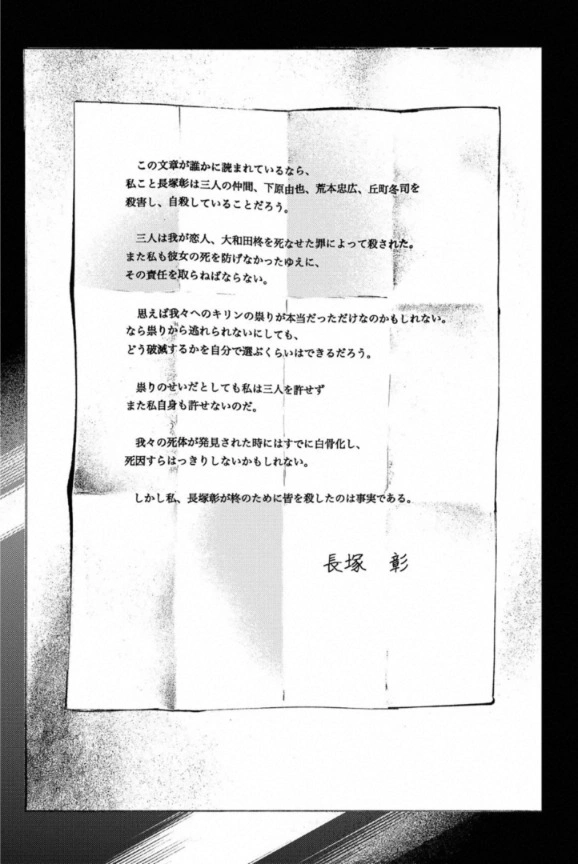 この文章が誰かに読まれているなら、
私こと長塚彰は三人の仲間、下原由也、荒本忠広、丘町冬司を
殺害し、自殺していることだろう。
三人は我が恋人、大和田柊を死なせた罪によって殺された。
また私も彼女の死を防げなかったゆえに、
その責任を取らねばならない。
思えば我々へのキリンの祟りが本当だっただけなのかもしれない。
なら祟りから逃れられないにしても、
どう破滅するかを自分で選ぶくらいはできるだろう。
祟りのせいだとしても私は三人を許せず
また私自身も許せないのだ。
我々の死体が発見された時にはすでに白骨化し、
死因すらはっきりしないかもしれない。
しかし私、長塚彰が柊のために皆を殺したのは事実である。
長塚 彰